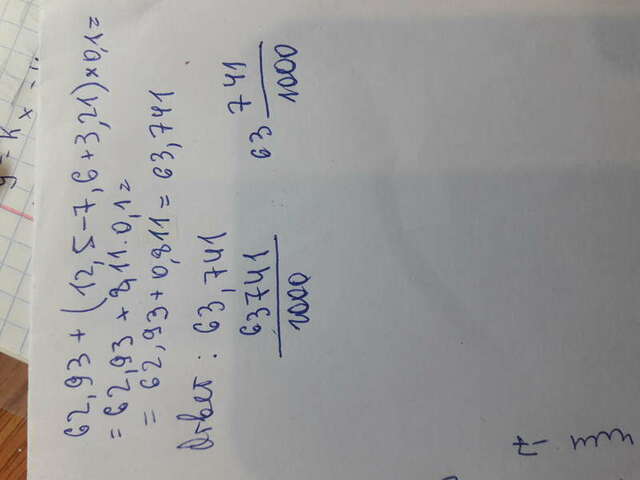 y = k
x
62,93 + (12,5-7,6+3,21)×0,1=
= 62,93 + 8,11·0,1=
= 62,93+0,811 = 63,741
Ответ: 63,741
63741
1000
63 741
1000